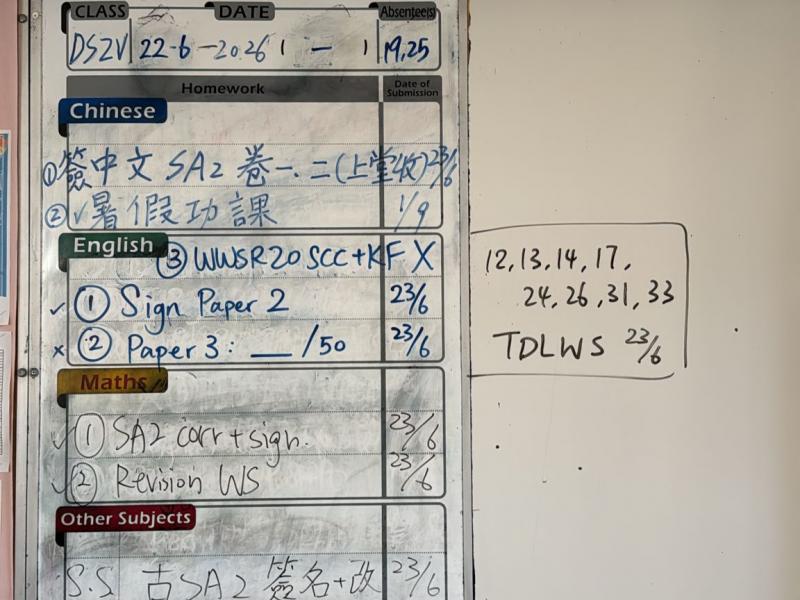 CLASS DATE Absentee(s)
DS2V 22-6-2026 1 — 1 19,25
Homework Date of Submission
Chinese
① 簽中文 SA2 卷一.二(上堂收) 23/6
② ✓ 暑假功課 1/9
English
③ WWSR20 SCC+KF X
✓ ① Sign Paper 2 23/6
x ② Paper 3: __/50 23/6
Maths
✓ ① SA2 corr+sign. 23/6
✓ ② Revision WS 23/6
Other Subjects
S.S. 古SA2 簽名+改 23/6
12,13,14,17,
24,26,31,33
TDLWS 23/6